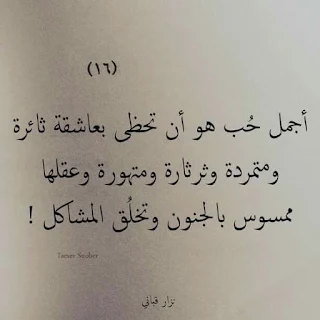 (١٦)
أجمل حُب هو أن تحظى بعاشقة ثائرة
ومتمردة وثرثارة ومتهورة وعقلها
ممسوس بالجنون وتخلُق المشاكل !
نزار قباني